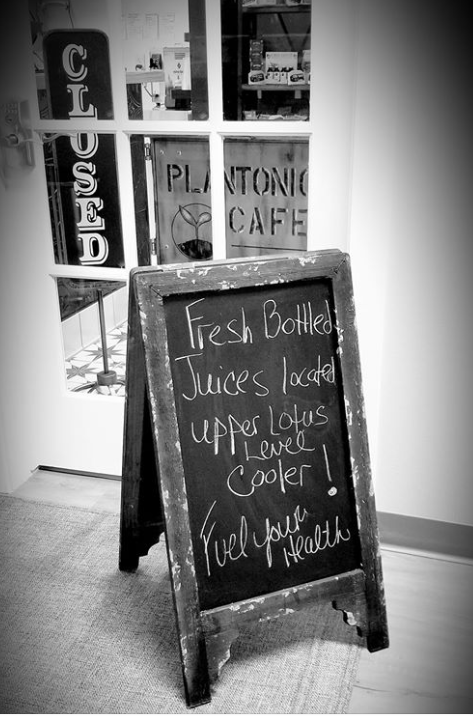 CLOSED
PLANTONIC
CAFE
Fresh Bottled
Juices located
upper Lotus
Level
Cooler!
Fuel your
Health